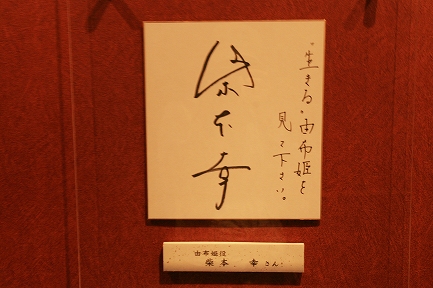 "生きる"由布姫を
見て下さい。
柴本幸
由布姫役
柴本 幸さん